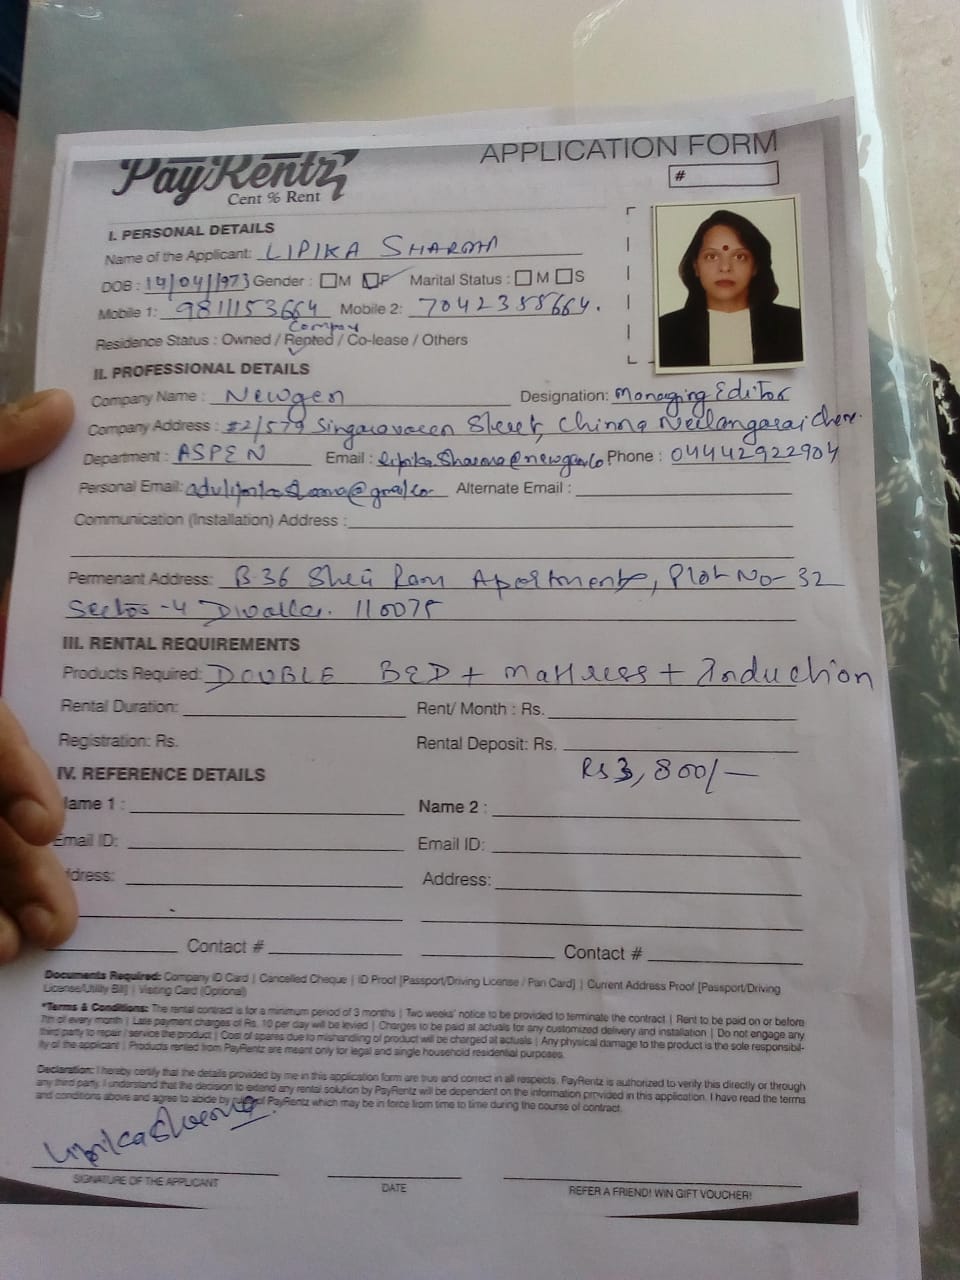 PayRentz
Cent % Rent
APPLICATION FORM
#
I. PERSONAL DETAILS
Name of the Applicant: LIPIKA SHARMA
DOB : 14/04/1973 Gender : M F Marital Status : M S
Mobile 1: 9811153664 Mobile 2: 7042388664.
Company
Residence Status : Owned / Rented / Co-lease / Others
II. PROFESSIONAL DETAILS
Company Name : Newgen Designation: Managing Editor
Company Address : #2/579 Singaravaren Street, Chinna Neelangarai Chenn.
Department : ASPEN Email : lipika.sharma@newgen.co Phone : 04442922904
Personal Email: Alternate Email :
Communication (Installation) Address :
Permenant Address: B-36 Shri Ram Apartments, Plot No-32
Sector-4 Dwarka. 110075
III. RENTAL REQUIREMENTS
Products Required: DOUBLE BED + Mattress + Induction
Rental Duration: Rent/ Month : Rs.
Registration: Rs. Rental Deposit: Rs.
Rs 3,800/-
IV. REFERENCE DETAILS
Name 1 : Name 2 :
Email ID: Email ID:
dress: Address:
Contact # Contact #
Documents Required: Company ID Card | Cancelled Cheque | ID Proof [Passport/Driving License / Pan Card] | Current Address Proof [Passport/Driving
License/Utility Bill] | Visiting Card (Optional)
*Terms & Conditions: The rental contract is for a minimum period of 3 months | Two weeks' notice to be provided to terminate the contract | Rent to be paid on or before
7th of every month | Late payment charges of Rs. 10 per day will be levied | Charges to be paid at actuals for any customized delivery and installation | Do not engage any
third party to repair / service the product | Cost of spares due to mishandling of product will be charged at actuals | Any physical damage to the product is the sole responsibil-
ity of the applicant | Products rented from PayRentz are meant only for legal and single household residential purposes.
Declaration: I hereby certify that the details provided by me in this application form are true and correct in all respects. PayRentz is authorized to verify this directly or through
any third party. I understand that the decision to extend any rental solution by PayRentz will be dependent on the information provided in this application. I have read the terms
and conditions above and agree to abide by PayRentz which may be in force from time to time during the course of contract.
Lipika Sharma
SIGNATURE OF THE APPLICANT DATE REFER A FRIEND! WIN GIFT VOUCHER!